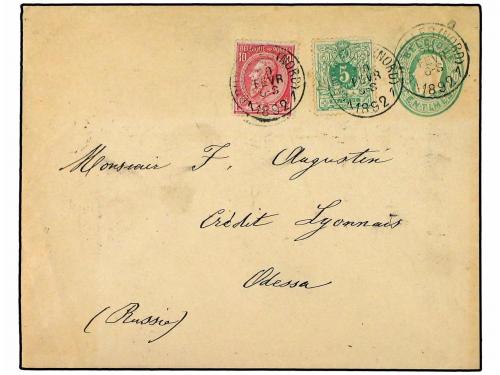 BELGIQUE
10
5
(NORD)
9
FEVR
1892
(NORD)
FEVR
1892
(NORD)
1892
Monsieur F. Augustin
Crédit Lyonnais
Odessa
(Russie)